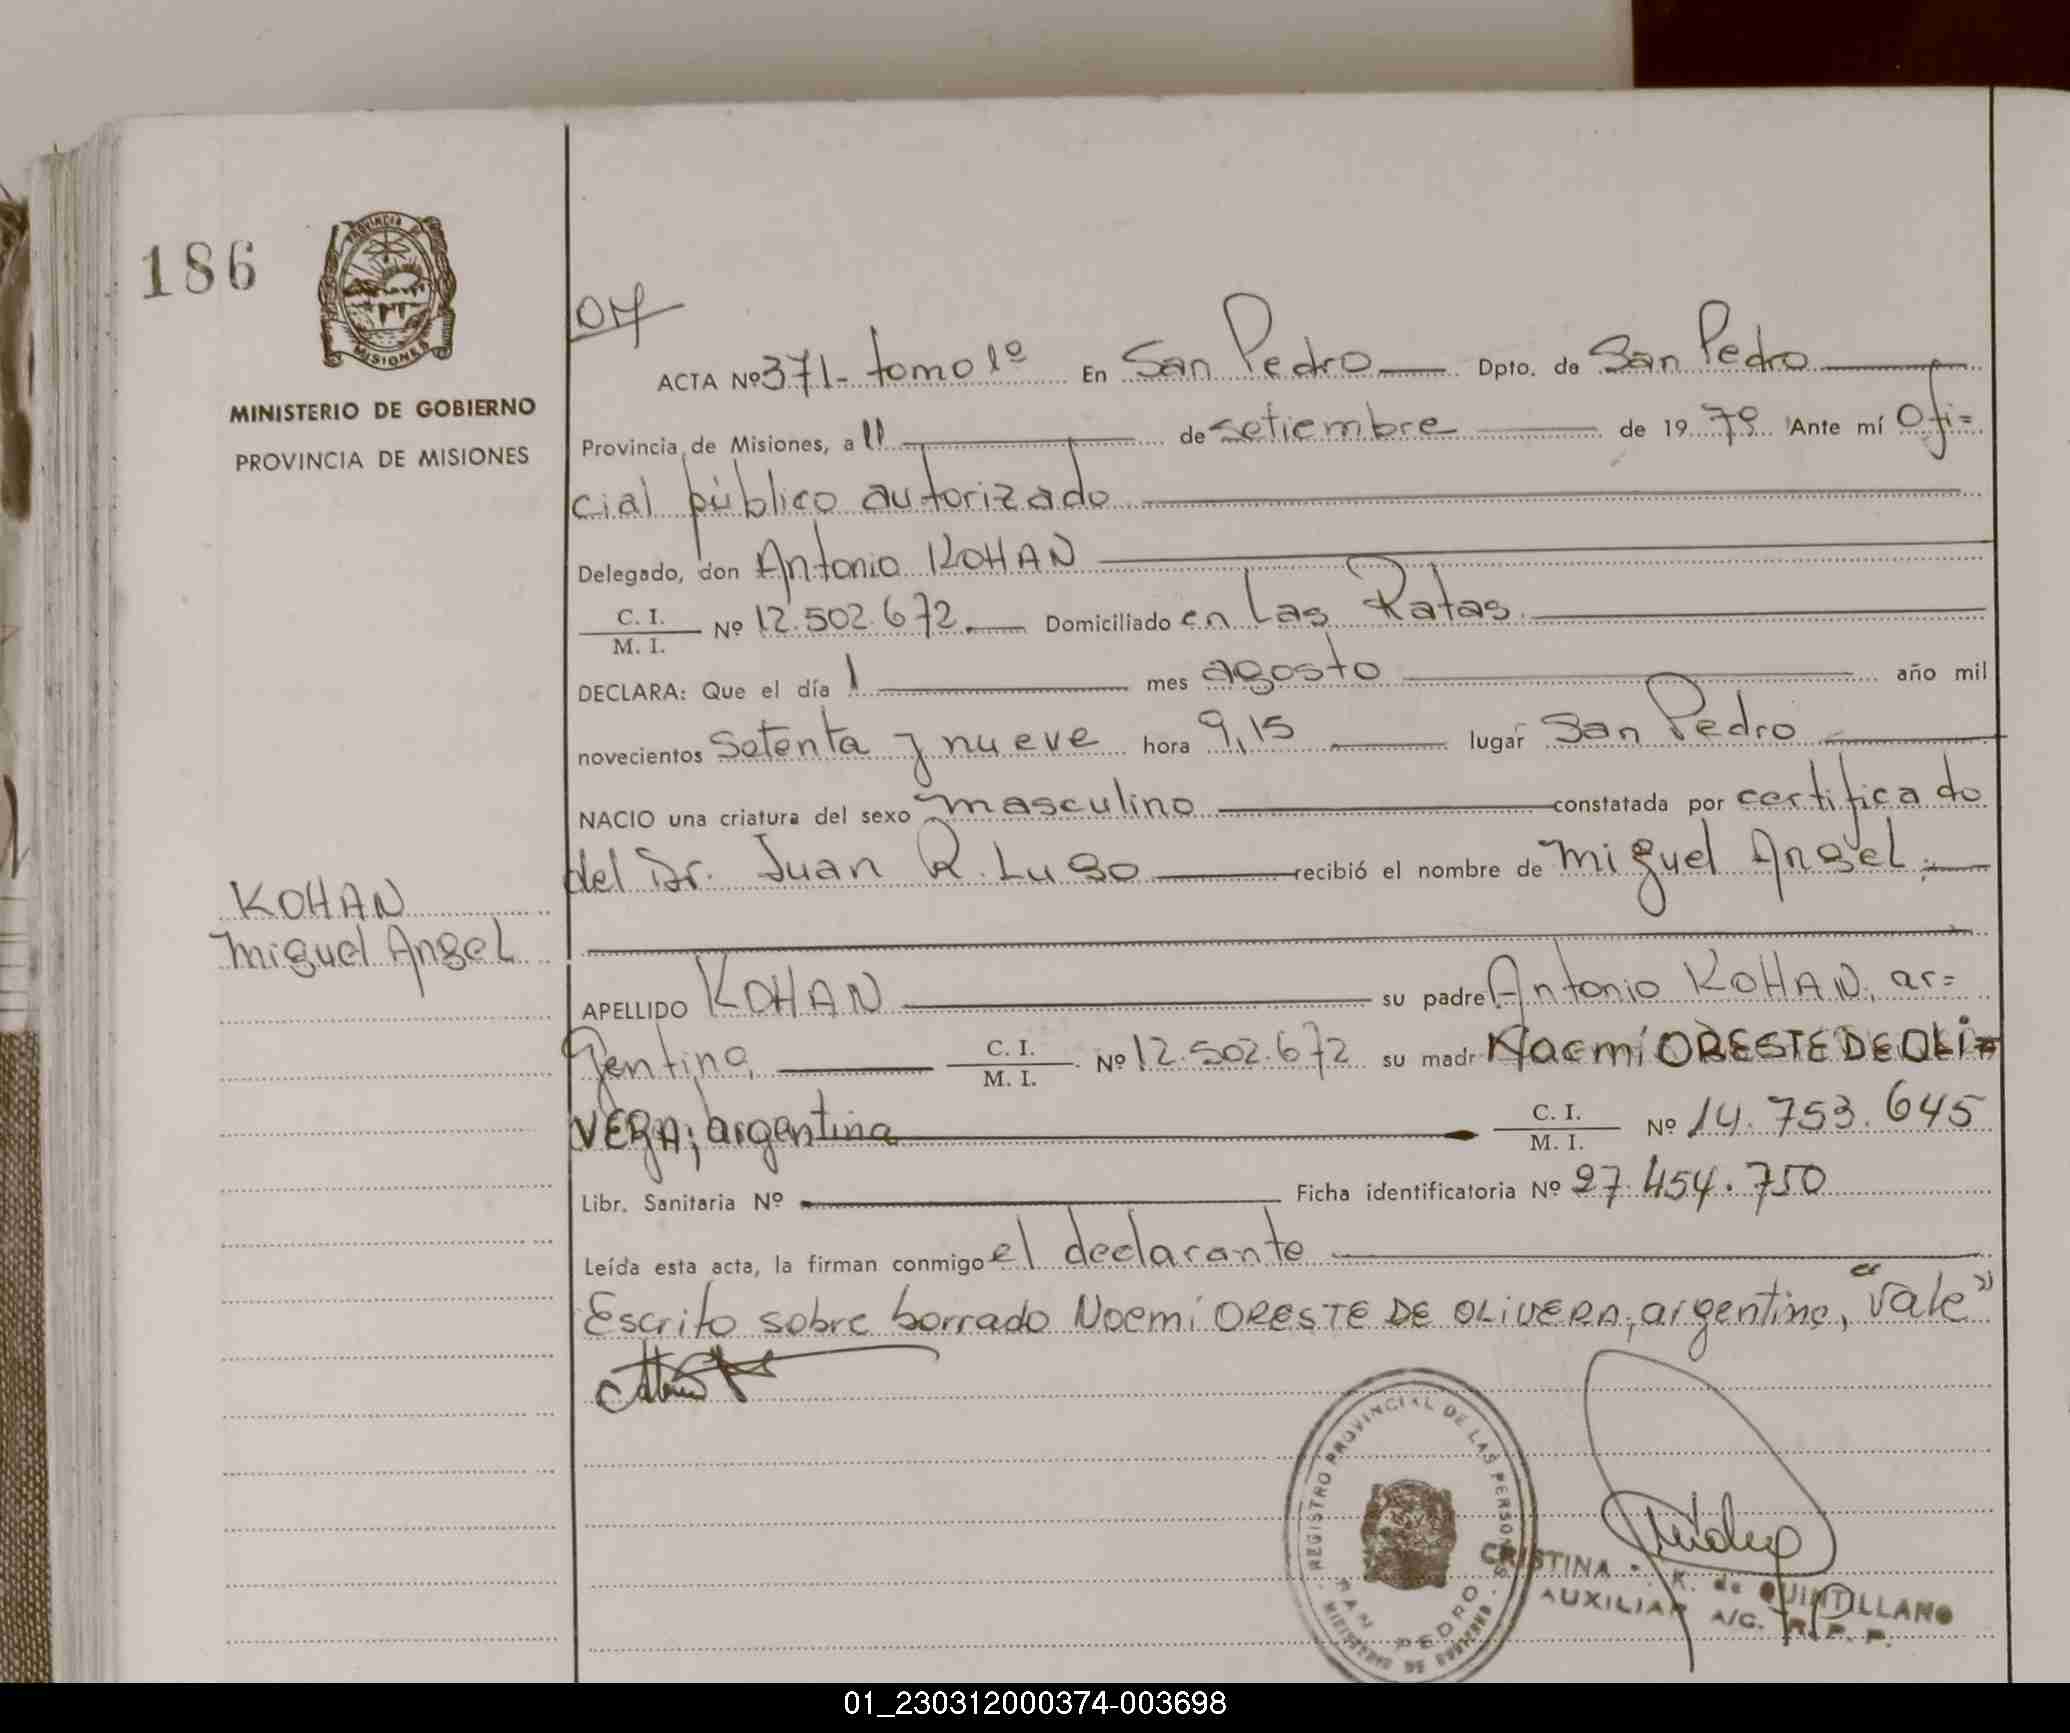 186
PROVINCIA DE
MISIONES
MINISTERIO DE GOBIERNO
PROVINCIA DE MISIONES
KOHAN
Miguel Angel
ACTA Nº 371- tomo 1º En San Pedro Dpto. de San Pedro
Provincia de Misiones, a 11 de setiembre de 1979 Ante mí Ofi=
cial público autorizado
Delegado, don Antonio KOHAN
C. I.
M. I. Nº 12.502.672. Domiciliado en Las Ratas
DECLARA: Que el día 1 mes agosto año mil
novecientos setenta y nueve hora 9,15 lugar San Pedro
NACIO una criatura del sexo masculino constatada por certificado
del Dr. Juan R. Lugo recibió el nombre de Miguel Angel,
APELLIDO KOHAN su padre Antonio KOHAN, ar=
gentino, C. I.
M. I. Nº 12.502.672 su madr Noemí ORESTE DE OLI=
VERA; argentina C. I.
M. I. Nº 14.753.645
Libr. Sanitaria Nº Ficha identificatoria Nº 27.454.750
Leída esta acta, la firman conmigo el declarante
Escrito sobre borrado Noemí ORESTE DE OLIVERA, argentina, "Vale"
REGISTRO PROVINCIAL DE LAS PERSONAS
SAN PEDRO
CRISTINA K. de QUINTILLANO
AUXILIAR A/C. R. P. P.
01_230312000374-003698